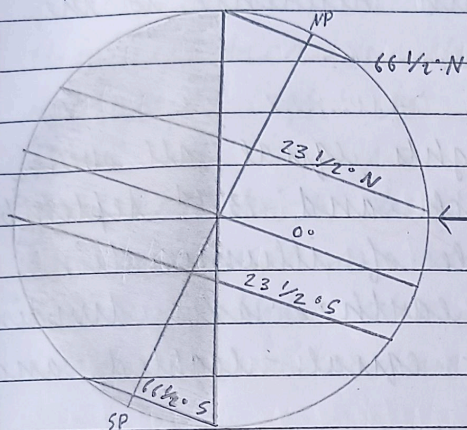 NP
66 1/2° N
23 1/2° N
0°
23 1/2° S
66 1/2° S
SP